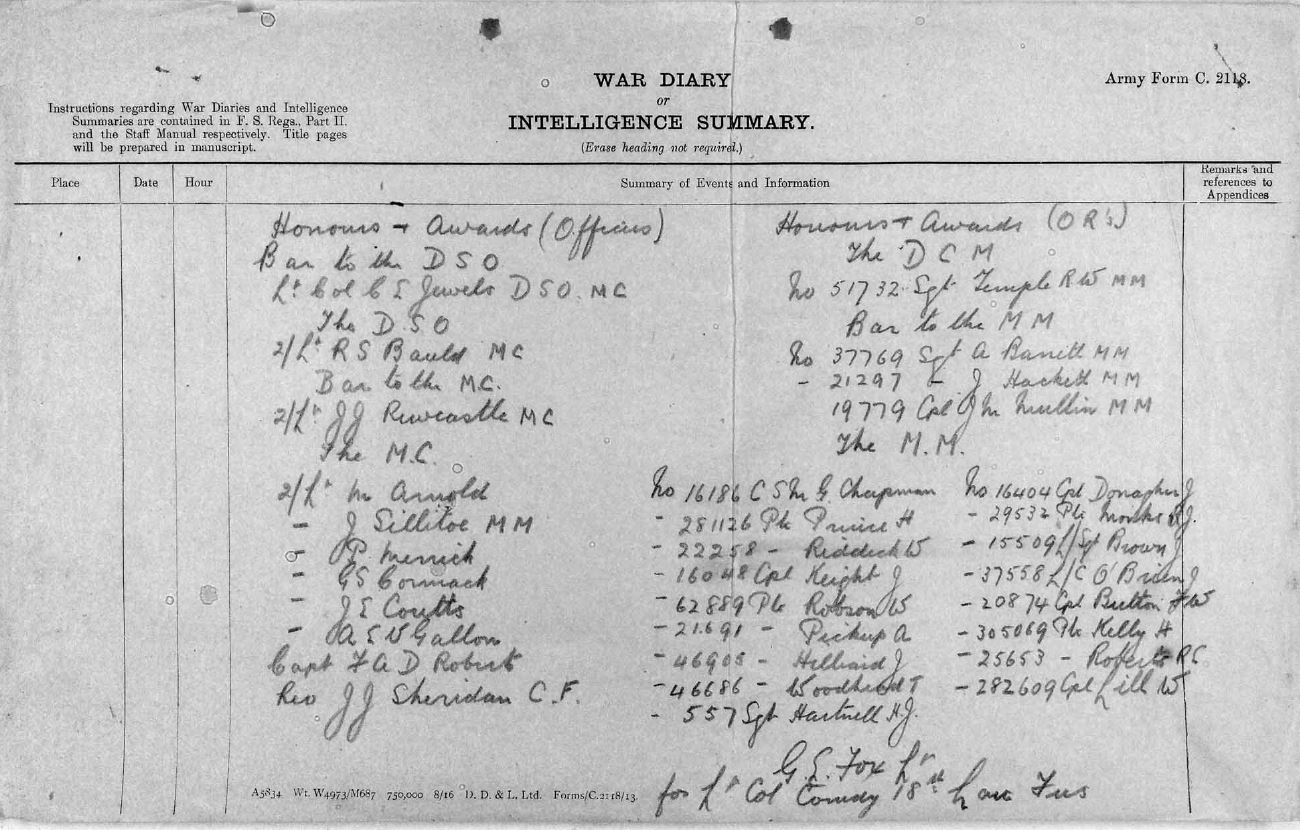 WAR DIARY
or
INTELLIGENCE SUMMARY.
(Erase heading not required.)
Army Form C. 2118.
Instructions regarding War Diaries and Intelligence
Summaries are contained in F. S. Regs., Part II.
and the Staff Manual respectively. Title pages
will be prepared in manuscript.
Place
Date
Hour
Summary of Events and Information
Remarks and
references to
Appendices
Honours + Awards (Officers)
Bar to the D S O
Lt Col C E Jewels DSO. MC
The D.S O
2/Lt R S Bauld MC
Bar to the M.C.
2/Lt J J Rewcastle MC
The M.C.
2/Lt M Arnold
- J Sillitoe MM
- P Merrick
- GS Cormack
- J E Coutts
- A E V Gallon
Capt F A D Roberts
Rev J J Sheridan C.F.
Honours + Awards (O R's)
The D C M
No 51732 Sgt Temple R W MM
Bar to the M M
No 37769 Sgt A Barrett MM
- 21297 - J Hackett MM
19779 Cpl J McMullin MM
The M.M.
No 16186 C S M G. Chapman
- 281126 Pte Prince H
- 22258 - Riddick W
- 16048 Cpl Keight J
- 62889 Pte Robson W
- 21691 - Pickup A
- 46905 - Hilliard J
- 46686 - Woodhead T
- 557 Sgt Hartnell H.J.
No 16404 Cpl Donaghey J
- 29532 Pte Monks R.J.
- 15509 L/Sgt Brown J
- 37558 L/C O'Brien J
- 20874 Cpl Button F W
- 305069 Pte Kelly H
- 25653 - Roberts RC
- 282609 Cpl Lill W
G. E. Fox Lt
for Lt Col Comdg 18th Lan Fus
A5834 Wt. W4973/M687 750,000 8/16 D. D. & L. Ltd. Forms/C.2118/13.